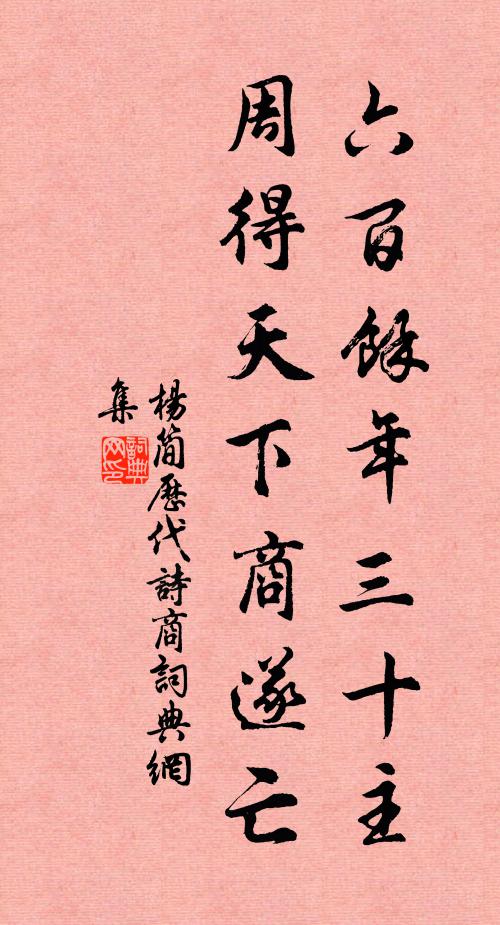 六百餘年三十主
周得天下商遂亡
楊簡歷代詩商詞典網
集
詞典網印